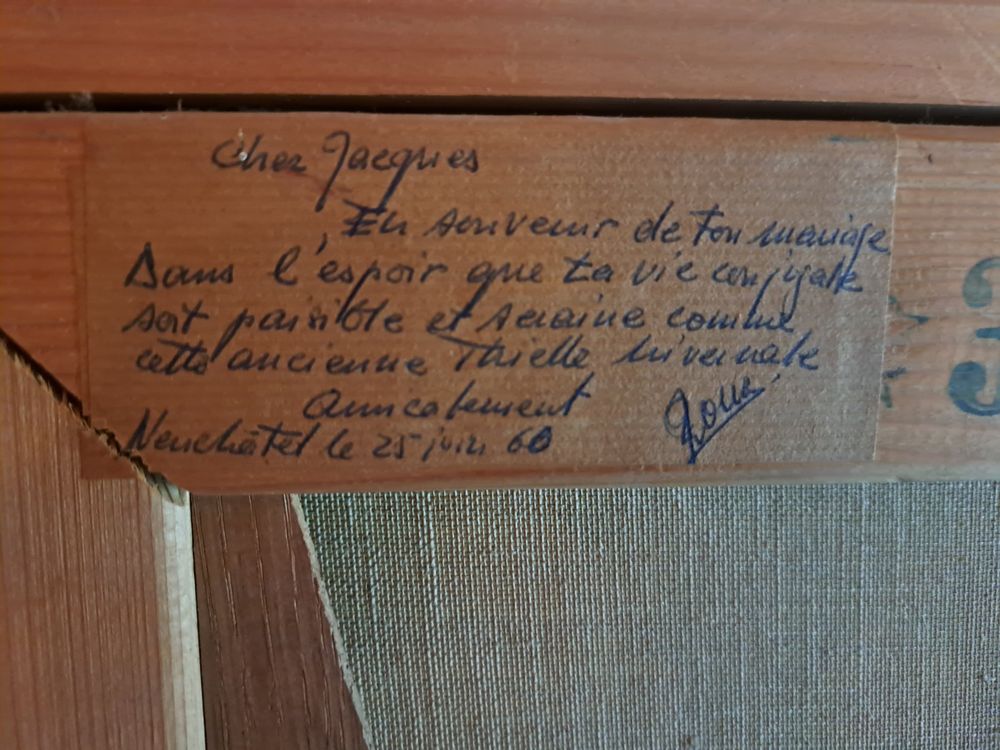 Cher Jacques
En souvenir de ton mariage
Dans l'espoir que ta vie conjugale
soit paisible et sereine comme
cette ancienne Thielle hivernale
Amicalement
Neuchâtel le 25 juin 60